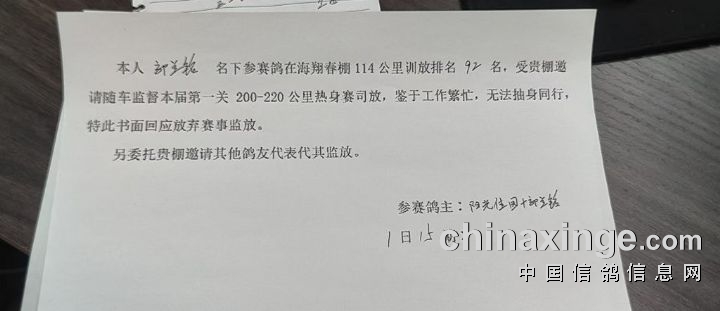 本人 郭兰铭 名下参赛鸽在海翔春棚114公里训放排名 92 名，受贵棚邀
请随车监督本届第一关 200-220 公里热身赛司放，鉴于工作繁忙，无法抽身同行，
特此书面回应放弃赛事监放。
另委托贵棚邀请其他鸽友代表代其监放。
参赛鸽主：阳光佳园+郭兰铭
1日15
chinaxinge.com
中国信鸽信息网